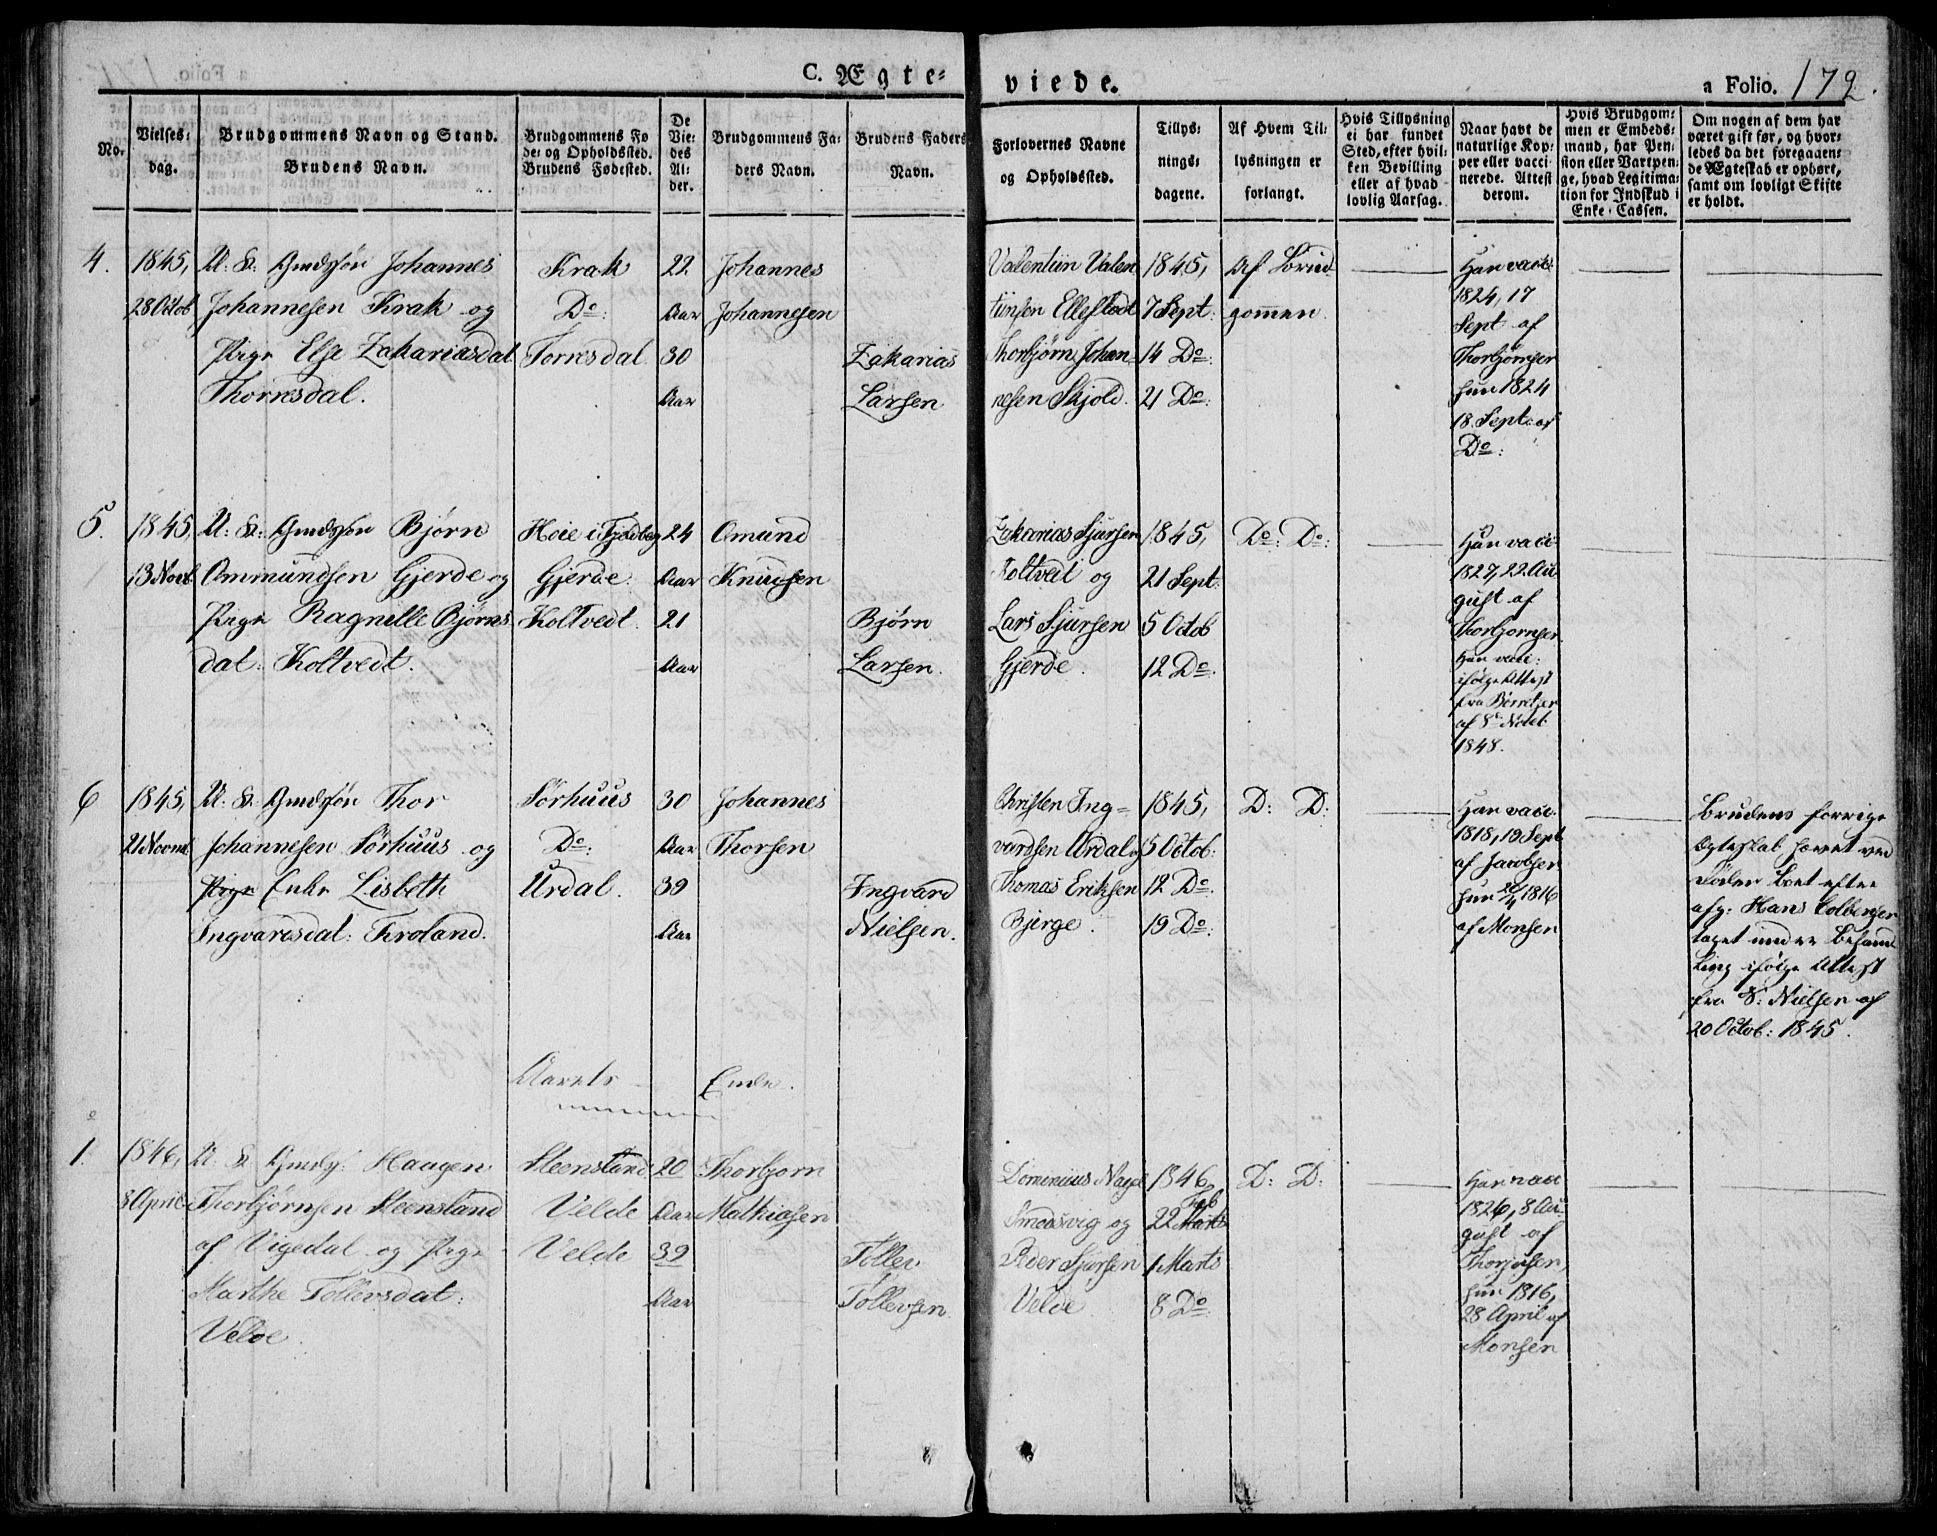 C. Ægte-
viede.
a Folio. 172.
No.
Vielses-
dag.
Brudgommens Navn og Stand.
Brudens Navn.
Brudgommens Fø
de- og Opholdssted.
Brudens Fødested.
De
Vie-
des
Al-
der.
Brudgommens Fa-
ders Navn.
Brudens Faders
Navn.
Forlovernes Navne
og Opholdssted.
Tillys-
nings-
dagene.
Af Hvem Til-
lysningen er
forlangt.
Hvis Tillysning
ei har fundet
Sted, efter hvil-
ken Bevilling
eller af hvad
lovlig Aarsag.
Naar havt de
naturlige Kop-
per eller vacci
nerede. Attest
derom.
Hvis Brudgom-
men er Embeds-
mand, har Pen-
sion eller Vartpen-
ge, hvad Legitima-
tion for Indskud i
Enke-Cassen.
Om nogen af dem har
været gift før, og hvor-
ledes da det foregaaen-
de Ægteskab er ophørt,
samt om lovligt Skifte
er holdt.
4.
1845,
28 Octob
U: K: Gmdssøn Johannes
Johannesen Krak og
Pige Else Zakariasdat
Thorresdal.
Krak
Do:
Torresdal
22
Aar
30
Aar
Johannes
Johannesen
Zakarias
Larsen
Valentiin Valen
tiinsen Ellestadt
Thorbjørn Johan-
nesen Skjold.
1845,
7 Sept:
14 Do:
21 Do:
Af Brud
gommen
Han vacc:
1824, 17
Sept af
Thorbjørnsen
hun 1824
18. Sept: af
Do:
5.
1845
13 Novb
U: K: Gmdssøn Bjørn
Ommundsen Gjerde og
Pige Ragnille Bjørns
dat: Koltvedt.
Høie i
Gjerde.
Koltvedt
24
Aar
21
Aar
Omund
Knudsen
Bjørn
Larsen.
Zakarias Sjursen
Koltvedt og
Lars Sjursen
Gjerde.
1845,
21 Sept:
5 Octob
12 Do:
Do: Do:
Han vacc
1827, 22 Au
gust af
Thorbjørnsen
Hun vacc:
ifølge Attest
fra
af
1848.
6
1845,
21 Novmb
U: K: Gmdssøn Thor
Johannesen Sørhuus og
Pige Enke Lisbeth
Ingvarsdat: Froland.
Sørhuus
Do:
Urdal.
30
Aar
39
Aar
Johannes
Thorsen
Ingvard
Nielsen.
Christen Ing-
vardsen Urdal
Thomas Eriksen
Bjerge.
1845,
5 Octob:
12 Do:
19 Do:
D: D:
Han vacc:
1818, 19 Sept
af Jacobsen
hun 1816
af Monsen
Brudens forrige
Ægteskab hævet ved
Døden Boet efter
afg: Hans
taget under Behand
ling ifølge Attest
fra S: Nielsen af
20 Octob: 1845.
Aarets Ende.
1.
1846,
8 April
U: K: Gmds: Haagen
Thorbjørnsen Steensland
af Vigedal og Pige
Marthe Tollevsdat:
Velde.
Steensland
Velde
Velde
20
Aar
39
Aar
Thorbjørn
Mathiasen
Tollev
Tollevsen
Dominius
Smedsvig og
Peder Sjursen
Velde.
1846
22 Marts Feb
1 Marts
8 Do:
D: D:
Han vacc
1826, 8 Au-
gust af
hun 1816,
28 April af
Monsen